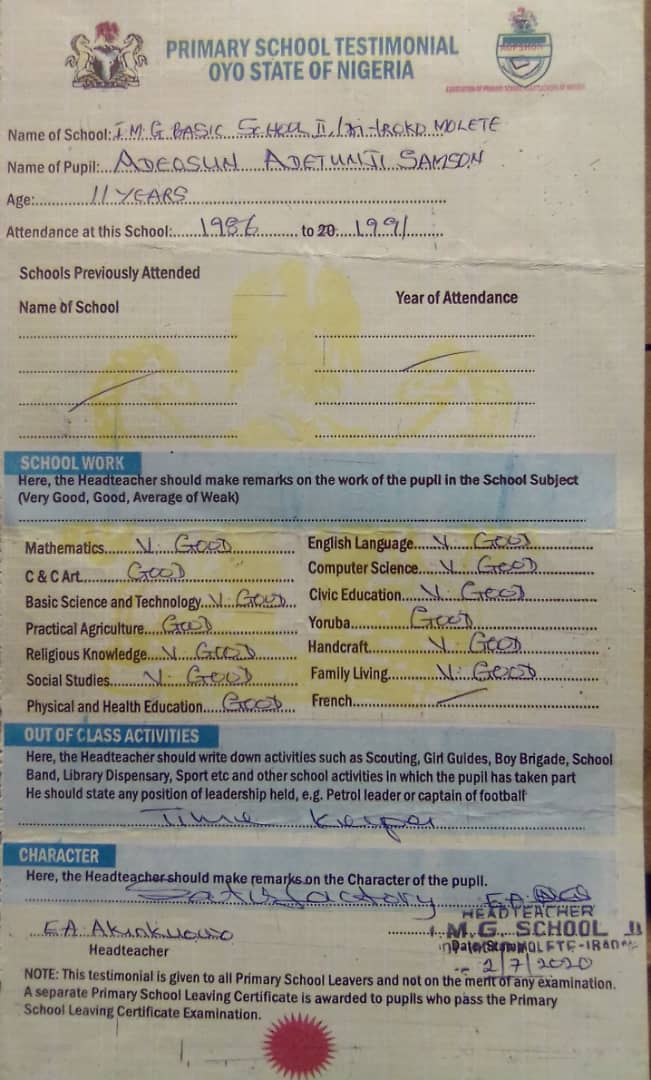 PRIMARY SCHOOL TESTIMONIAL
OYO STATE OF NIGERIA
AOPSHON
Name of School: I.M.G BASIC SCHOOL II, MOLETE
Name of Pupil: ADEOSUN ADETUNJI SAMSON
Age: 11 YEARS
Attendance at this School: 1986 to 20 1991
Schools Previously Attended
Name of School Year of Attendance
SCHOOL WORK
Here, the Headteacher should make remarks on the work of the pupil in the School Subject
(Very Good, Good, Average of Weak)
Mathematics V. GOOD English Language V. GOOD
C & C Art GOOD Computer Science V. GOOD
Basic Science and Technology V. GOOD Civic Education V. GOOD
Practical Agriculture GOOD Yoruba GOOD
Religious Knowledge V. GOOD Handcraft V. GOOD
Social Studies V. GOOD Family Living V. GOOD
Physical and Health Education GOOD French
OUT OF CLASS ACTIVITIES
Here, the Headteacher should write down activities such as Scouting, Girl Guides, Boy Brigade, School
Band, Library Dispensary, Sport etc and other school activities in which the pupil has taken part
He should state any position of leadership held, e.g. Petrol leader or captain of football
Time Keeper
CHARACTER
Here, the Headteacher should make remarks on the Character of the pupil.
Satisfactory
HEADTEACHER
E A I.M.G. SCHOOL II
Headteacher
2/7/2020
NOTE: This testimonial is given to all Primary School Leavers and not on the merit of any examination.
A separate Primary School Leaving Certificate is awarded to pupils who pass the Primary
School Leaving Certificate Examination.